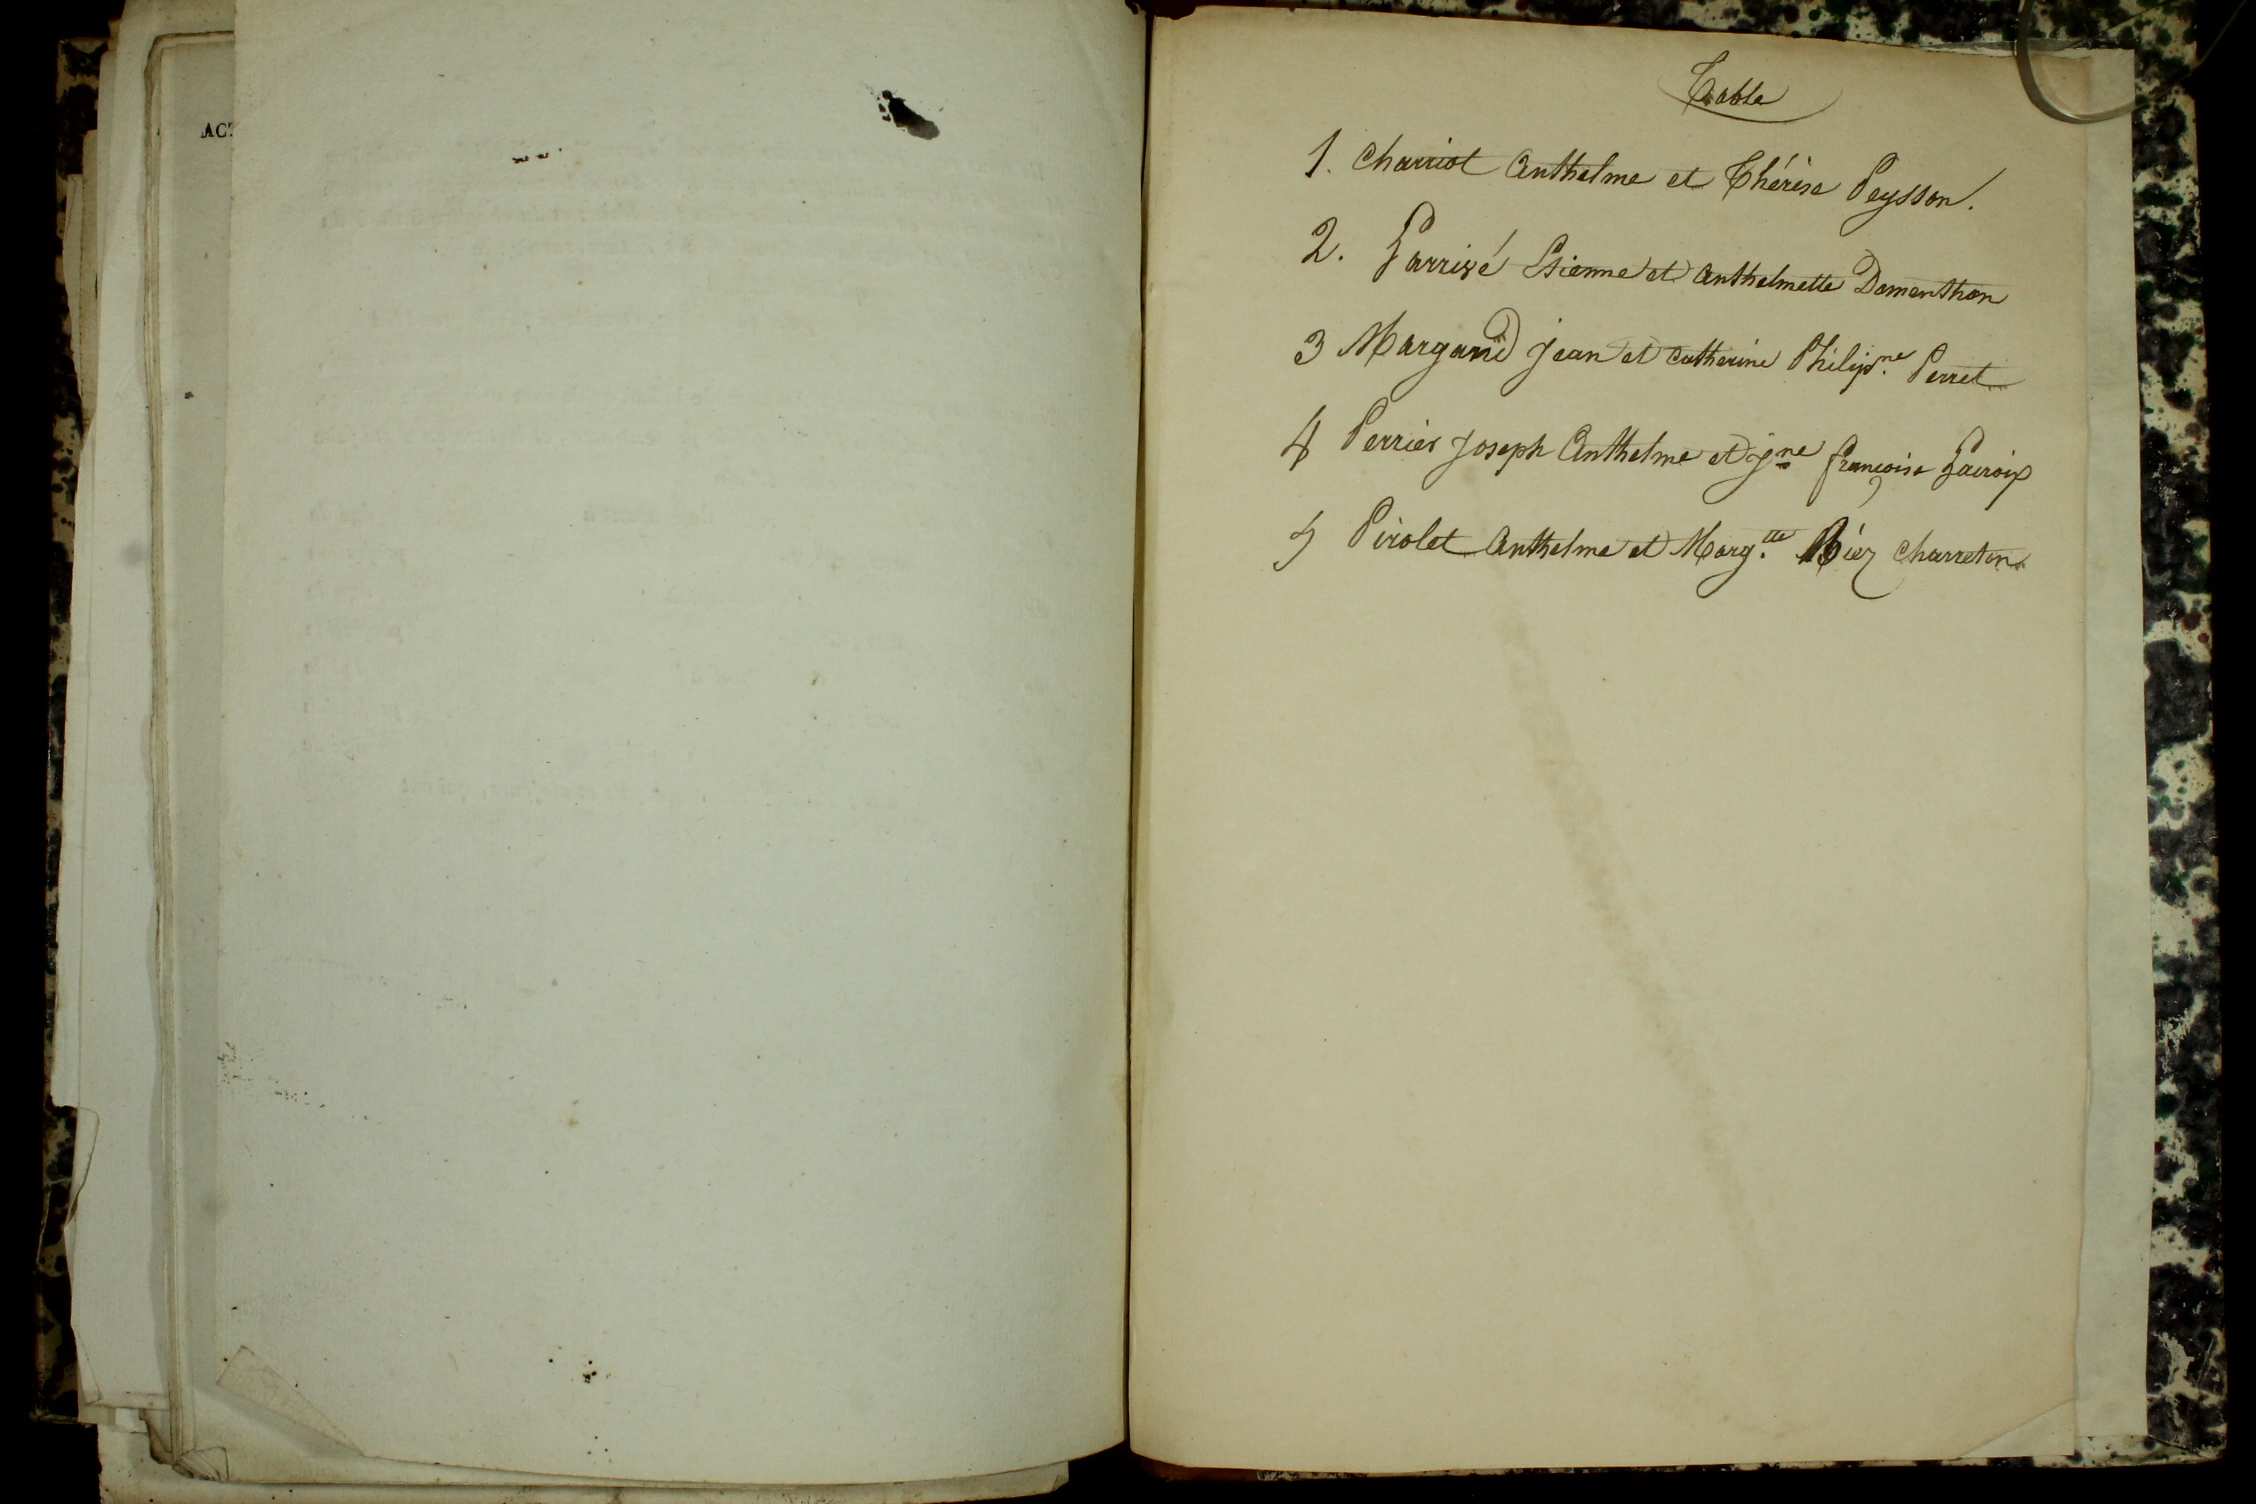 ACT
Table
1. Charriot Anthelme et Thérèse Peysson.
2. Larrivé Etienne et Anthelmette Dementhon
3 Margand Jean et Catherine Philip.ne Perret
4 Perrier Joseph Anthelme et Jne françoise Lacroix
5 Pirolet Anthelme et Marg.tte Charreton